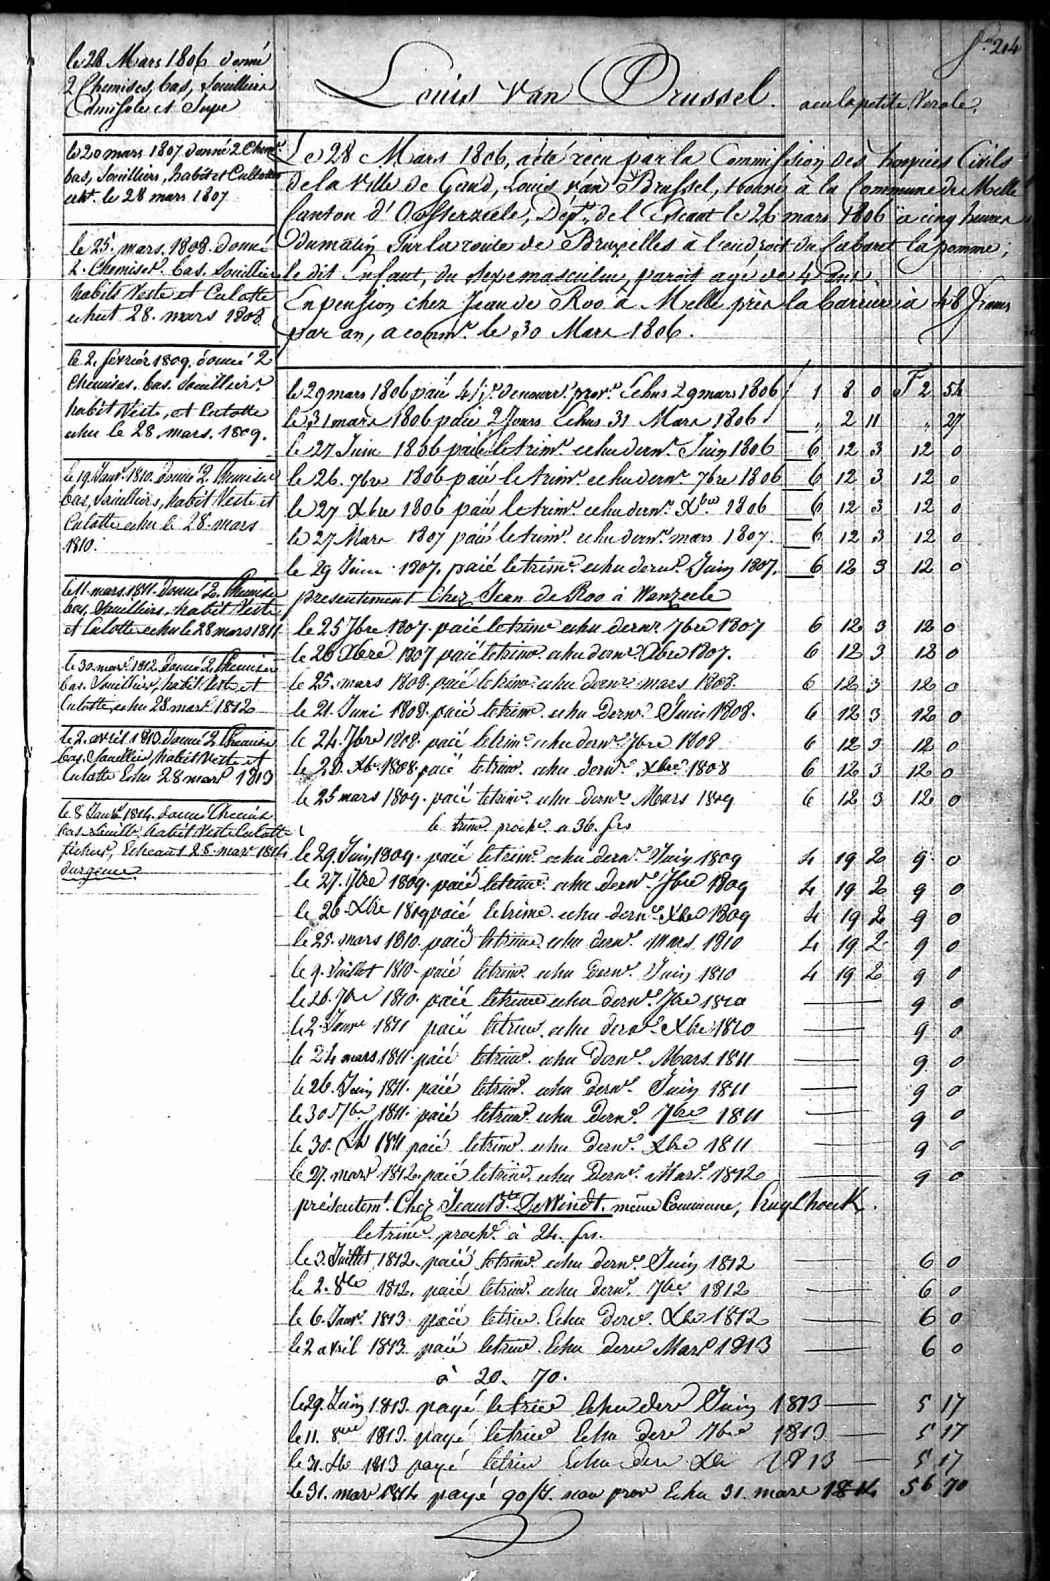 le 28 Mars 1806 donné
2 Chemises, bas, Souilliers
Camisole et Jupe
le 20 mars 1807 donné 2 Chem.
bas, Souilliers, habit et Culotte
le 28 mars 1807
le 25. mars. 1808. donné
2. Chemises. bas. Souilliers
habits Veste et Culotte
echeut 28. mars 1808
le 2. février 1809. donné 2
Chemises. bas. Souilliers
habit Veste, et Culotte
echu le 28. mars. 1809.
le 19. Janv. 1810. donné 2. Chemises
bas, Souilliers, habit Veste et
Culotte echu le 28. mars
1810.
le 11. mars. 1811. donné 2. Chemises
bas, Souilliers, habit Veste
et Culotte echu le 28 mars 1811.
le 30. mars 1812 donné 2 Chemises
bas. Souilliers, habit Veste et
Culotte, echu 28 mars 1812
le 2. avril. 1813. donné 2 Chemises
bas. Souilliers, habit Veste et
Culotte Echu 28 mars 1813
le 8 Janv. 1814. donné Chemise
bas Souill. habit Veste Culotte
Echeant 28. mars 1814
204
Louis van Brussel. a eu la petite Verole.
Le 28 Mars 1806, a été reçu par la Commission des hospices Civils
de la Ville de Gand, Louis van Brussel, trouvé à la Commune de Melle
Canton d'Oosterzeele, Dépt. de l'Escaut le 26 mars 1806 à cinq heures
du matin sur la route de Bruxelles à l'endroit du Cabaret la pomme;
le dit Enfant, du sexe masculin, paroit agé de 4 ans.
En pension chez Jean de Roo à Melle près la barriere à 48 francs
par an, a comm. le 30 Mars 1806.
le 29 mars 1806 paié prov. Echus 29 mars 1806 1 8 0 F 2 54
le 31 mars 1806 paié 2 Jours Echus 31 Mars 1806 " 2 11 " 27
le 27 Juin 1806 paié le trim. echu dern. Juin 1806 6 12 3 12 0
le 26. 7bre 1806 paié le trim. echu dern. 7bre 1806 6 12 3 12 0
le 27 Xbre 1806 paié le trim. echu dern. Xbre 1806 6 12 3 12 0
le 27 Mars 1807 paié le trim. echu dern. mars 1807. 6 12 3 12 0
le 29 Juin 1807. paié le trim. echu dern. Juin 1807. 6 12 3 12 0
presentement Chez Jean de Roo à Wanzeele
le 25 7bre 1807. paié le trim. echu dern. 7bre 1807 6 12 3 12 0
le 26 Xbre 1807 paié le trim. echu dern. Xbre 1807. 6 12 3 12 0
le 25. mars 1808. paié le trim. echu dern. mars 1808. 6 12 3 12 0
le 21. Juni 1808. paié le trim. echu Dern. Juin 1808. 6 12 3 12 0
le 24. 7bre 1808. paié le trim. echu dern. 7bre 1808 6 12 3 12 0
le 29. Xbr. 1808. paié le trim. echu dern. Xbre 1808 6 12 3 12 0
le 25 mars 1809. paié le trim. echu dern. Mars 1809 6 12 3 12 0
le trim. proch. a 36. frs
le 29. Juin 1809. paié le trim. echu dern. Juin 1809 4 19 2 9 0
le 27. 7bre 1809. paié le trim. echu dern. 7bre 1809 4 19 2 9 0
le 26. Xbre 1809 paié le trim. echu dern. Xbre 1809 4 19 2 9 0
le 25. mars 1810. paié le trim. echu dern. mars. 1810 4 19 2 9 0
le 9. Juillet 1810. paié le trim. echu dern. Juin 1810 4 19 2 9 0
le 26. 7bre 1810. paié le trim. echu dern. 7bre 1810 9 0
le 2. Janv. 1811 paié le trim. echu dern. Xbre 1810 9 0
le 24 mars. 1811. paié le trim. echu dern. Mars. 1811 9 0
le 26. Juin 1811. paié le trim. echu dern. Juin 1811 9 0
le 30. 7bre 1811. paié le trim. echu dern. 7bre 1811 9 0
le 30. Xbre 1811 paié le trim. echu dern. Xbre 1811 9 0
le 27. mars 1812. paié le trim. echu Dern. Mars. 1812 9 0
présentemt. Chez Jean Bte. De Windt. même Commune, Kruyshoeck.
le trim. proch. à 24. frs.
le 3. Juillet 1812. paié le trim. echu dern. Juin 1812 6 0
le 2. 8bre 1812. paié le trim. echu dern. 7bre 1812 6 0
le 6. Janv. 1813 paié le trim. Echu dern. Xbre 1812 6 0
le 2 avril 1813. paié le trim. Echu dern. Mars 1813 6 0
à 20. 70.
le 29. Juin 1813. payé le trim. Echu dern Juin 1813 5 17
le 11. 8bre 1813. payé le trim. Echu dern 7bre 1813 5 17
le 31. Xbre 1813 payé le trim Echu dern Xbr 1813 5 17
le 31. mars 1814 payé 90 frs. Echu 31. mars 1814 56 70